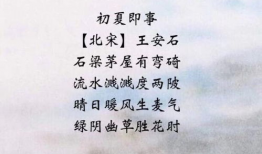 初夏即事
【北宋】王安石
石梁茅屋有弯碕
流水溅溅度两陂
晴日暖风生麦气
绿阴幽草胜花时